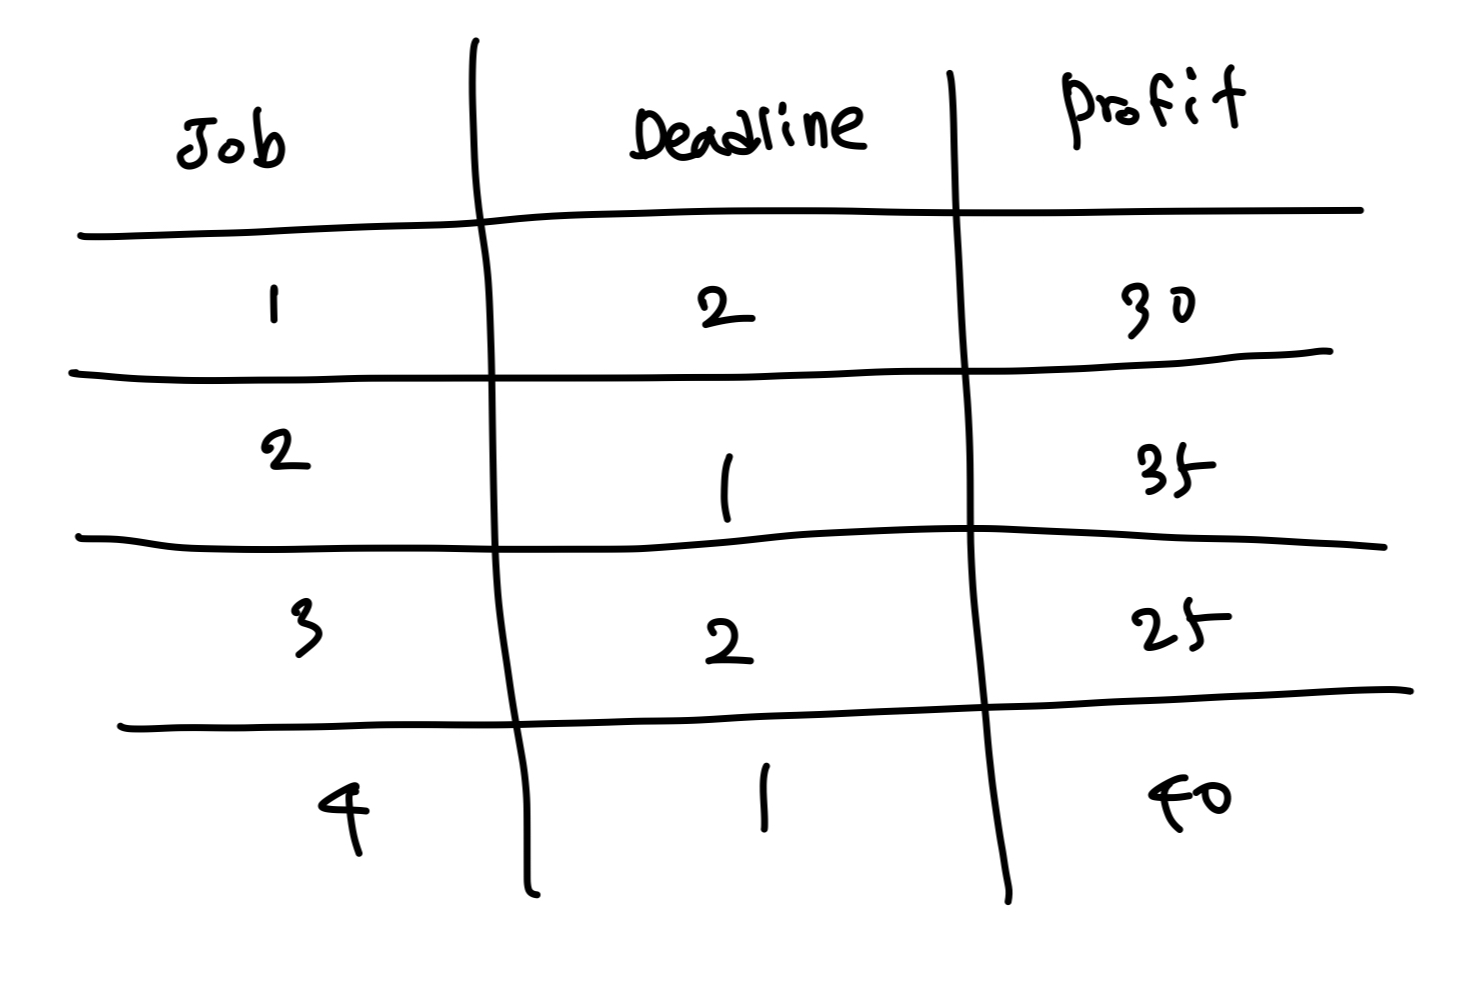 Job Deadline Profit
1 2 30
2 1 35
3 2 25
4 1 40